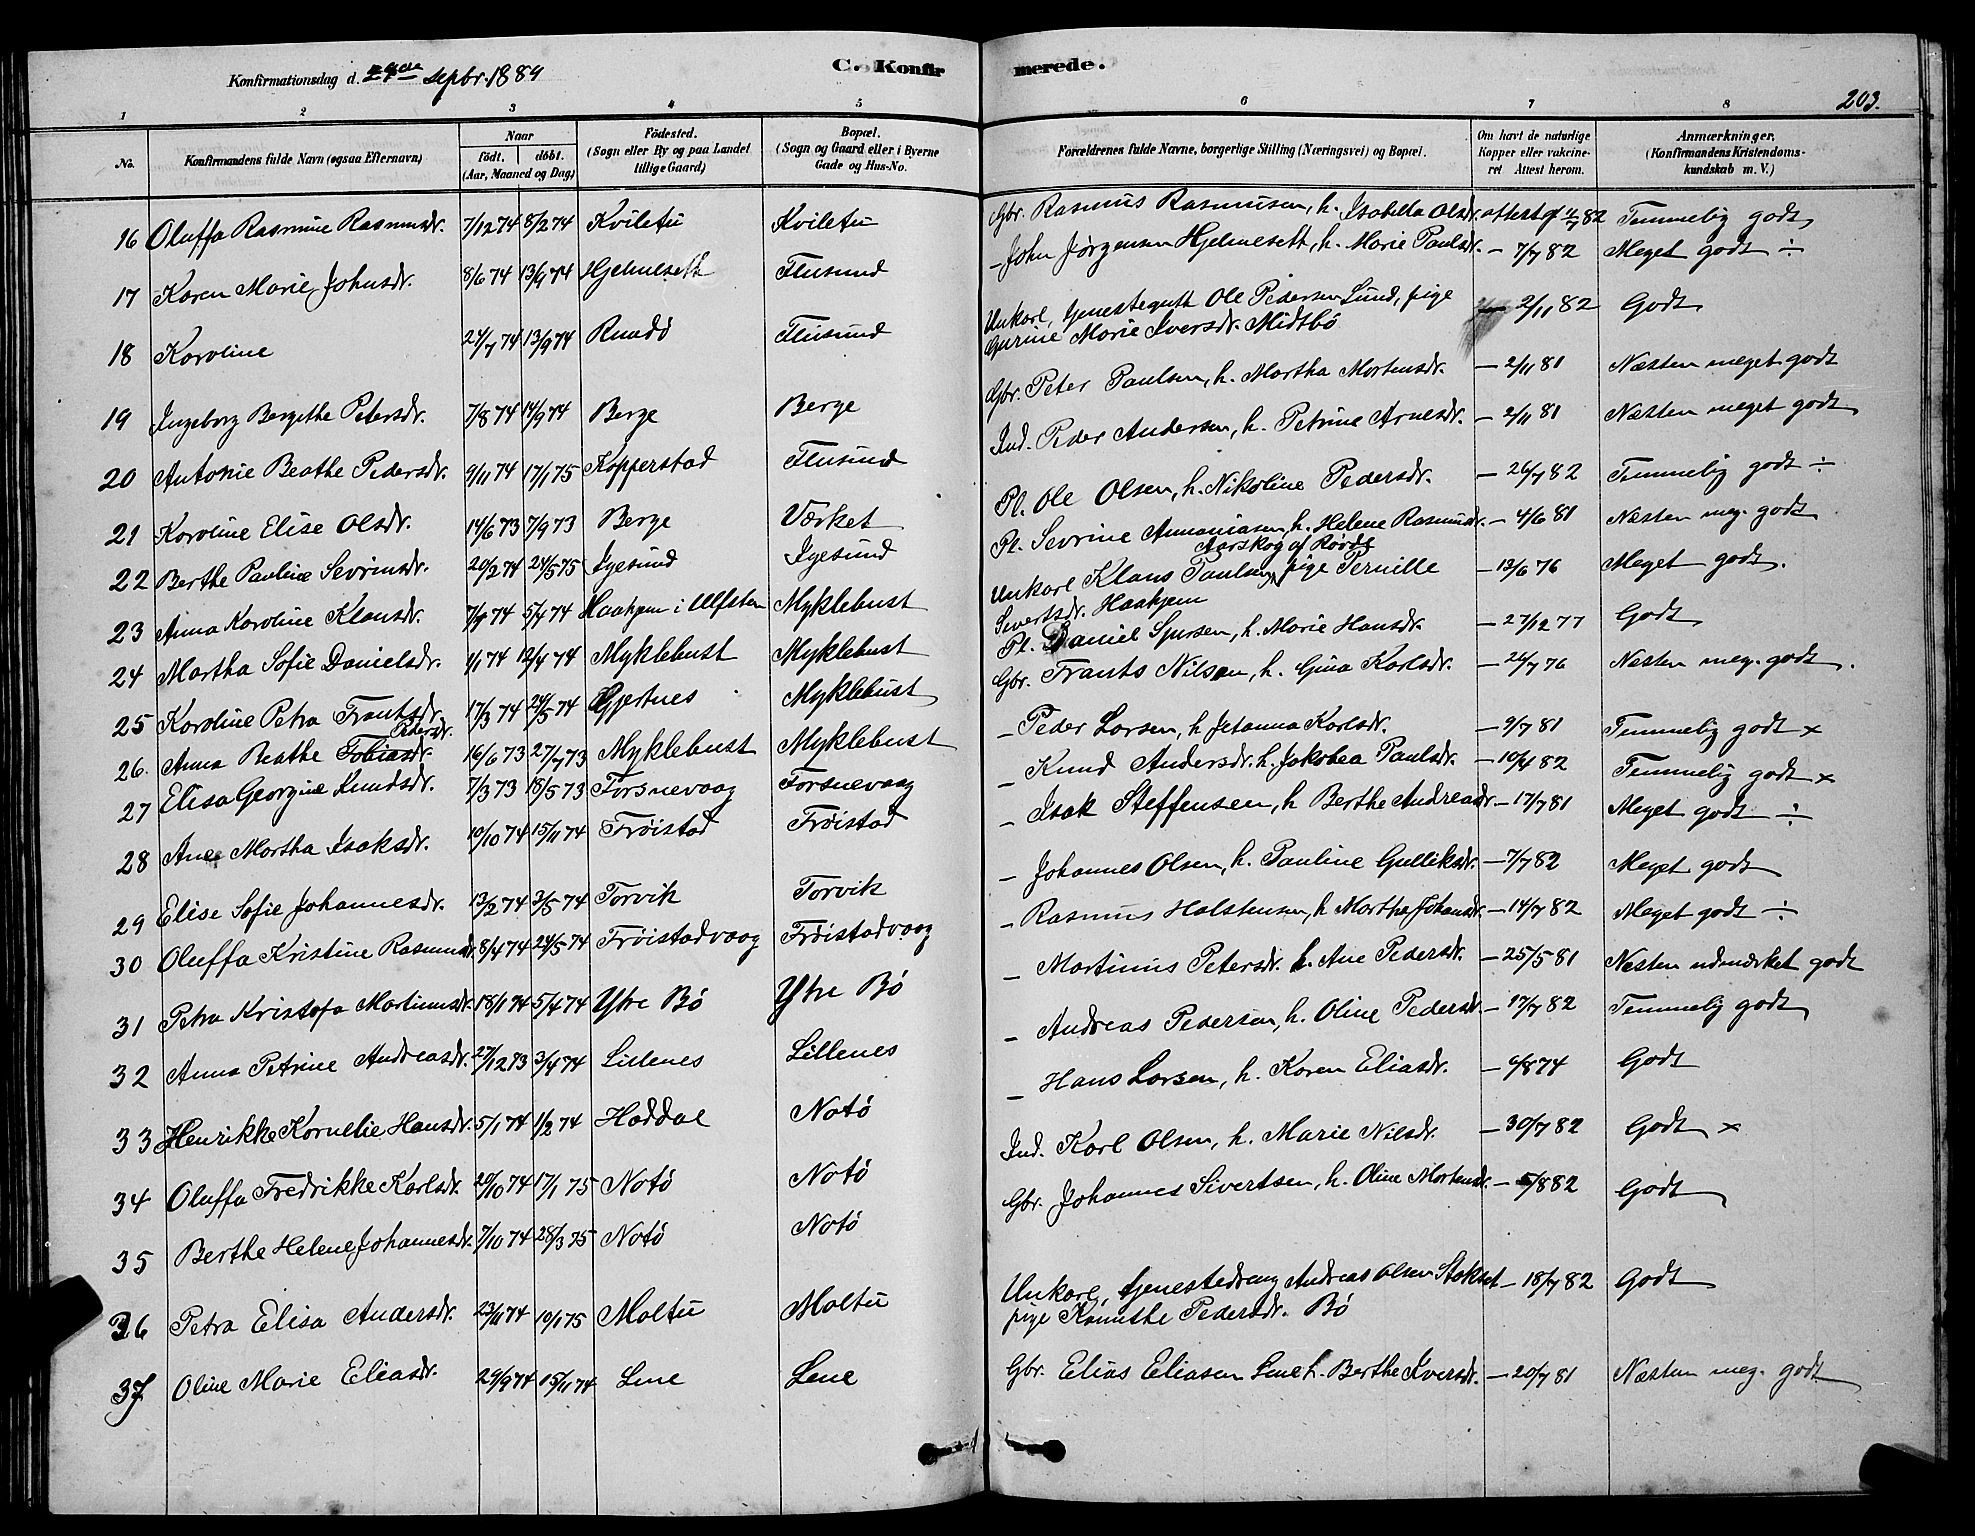 Konfirmationsdag d. 29de Septbr. 1889
C. Konfirmerede.
203.
1 2 3 4 5 6 7 8
No.
Konfirmandens fulde Navn (ogsaa Efternavn)
Naar
födt. döbt.
(Aar, Maaned og Dag)
Födested.
(Sogn eller By og paa Landet
tillige Gaard)
Bopæl.
(Sogn og Gaard eller i Byerne
Gade og Hus-No.
Forældrenes fulde Navne, borgerlige Stilling (Næringsvei) og Bopæl.
Om havt de naturlige
Kopper eller vakcine-
ret Attest herom.
Anmærkninger.
(Konfirmandens Kristendoms-
kundskab m. V.)
16 Oluffa Rasmine Rasmusdr. 7/12 74 8/2 74 Kviletu Kviletu Gbr. Rasmus Rasmusen, h. Isabella Olsdr. attest af 4/7 82 Temmelig godt
17 Karen Marie Johnsdr. 8/6 74 13/9 74 Hjelmeseth Flusund – John Jørgensen Hjelmesett, h. Marie Paulsdr. – 7/7 82 Meget godt ÷
18 Karoline 24/7 74 13/9 74 Rundö Flusund Unkarl, tjenestegutt Ole Pedersen Lund, pige
Gurine Marie Iversdr. Midtbö – 2/11 82 Godt
19 Ingeborg Bergithe Petersdr. 7/8 74 14/9 74 Berge Berge Gbr. Peter Paulsen, h. Martha Mortensdr. – 2/11 81 Næsten meget godt
20 Antonie Beathe Pedersdr. 9/11 74 17/1 75 Kopperstad Flusund Ind. Peder Andersen, h. Petrine Arnesdr. – 2/11 81 Næsten meget godt
21 Karoline Elise Olsdr. 14/6 73 7/9 73 Berge Værket Pl. Ole Olsen, h. Nikoline Pedersdr. – 26/7 82 Temmelig godt ÷
22 Berthe Pauline Sevrinsdr. 20/2 74 24/5 75 Igesund Igesund Pl. Sevrine Annaniasen, h. Helene Rasmusdr. – 4/6 81 Næsten meg. godt
Aarskog af Rövde
23 Anna Karoline Klausdr. 7/1 74 5/4 74 Haakjem i Ulfsten Myklebust Unkarl Klaus Paulsen, pige Pernille
Sivertsdr. Haakjem – 13/6 76 Meget godt.
24 Martha Sofie Danielsdr. 1/1 74 12/4 74 Myklebust Myklebust Pl. Daniel Sjursen, h. Marie Hansdr. – 27/12 77 Godt
25 Karoline Petra Frantsdr. 17/3 74 24/5 74 Gjertnes Myklebust Gbr. Frants Nilsen, h. Gina Karlsdr. – 24/7 76 Næsten meg. godt.
Pedersdr.
26. Anna Beathe Tobiasdr. 16/6 73 27/7 73 Myklebust Myklebust – Peder Larsen, h. Johanna Karlsdr. – 9/7 81 Temmelig godt ×
27 Elisa Georgine Knudsdr. 7/3 73 18/5 73 Torsnevaag Forsnevaag – Knud Andersdr. h. Jakobea Paulsdr. – 10/4 82 Temmelig godt ×
28 Ane Martha Isaksdr. 10/10 74 15/11 74 Fröistad Fröistad – Isak Steffensen, h. Berthe Andreasdr. – 17/7 81 Meget godt ÷
29 Elise Sofie Johannesdr. 13/2 74 3/5 74 Torvik Torvik – Johannes Olsen, h. Pauline Gulliksdr. – 7/7 82 Meget godt
30 Oluffa Kristine Rasmusdr. 8/4 74 24/5 74 Fröistadvaag Fröistadvaag – Rasmus Halstensen, h. Marthe Johansdr. – 14/7 82 Meget godt ÷
31 Petra Kristofa Martinusdr. 18/1 74 5/4 74 Ytre Bö Ytre Bö – Martinus Petersdr. h. Ane Pedersdr. – 25/5 81 Næsten udmærket godt
32 Anna Petrine Andreasdr. 27/12 73 3/4 74 Lillenes Lillenes – Andreas Pedersen, h. Oline Pedersdr. – 17/7 82 Temmelig godt
33 Henrikke Kornelie Hansdr. 5/1 74 1/2 74 Haddal Notö – Hans Larsen, h. Karen Eliasdr. – 6/8 74 Godt
34 Oluffa Fredrikke Karlsdr. 20/10 74 17/1 75 Notö Notö Ind. Karl Olsen, h. Marie Nilsdr. – 30/7 82 Godt ×
35 Berthe Helene Johannesdr. 7/10 74 28/3 75 Notö Notö Gbr. Johannes Sivertsen, h. Oline Mortensdr. – 5/8 82 Godt
36 Petra Elisa Andersdr. 23/11 74 10/1 75 Moltu Moltu Unkarl, tjenestedreng Andreas Olsen Stokset
pige Kanutthe Pedersdr. Bö – 18/7 82 Godt
37 Oline Marie Eliasdr. 29/9 74 15/11 74 Lene Lene Gbr. Elias Eliasen Lene h. Berthe Iversdr. – 20/7 81 Næsten meg. godt